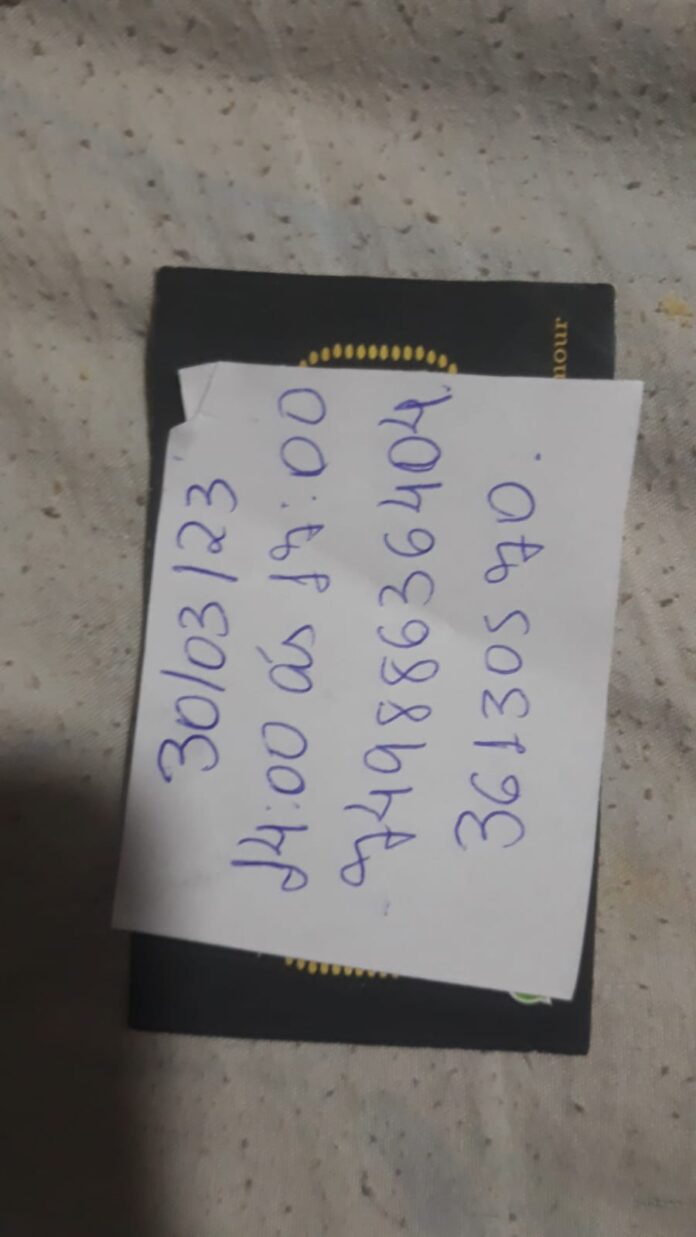 30/03/23
14:00 ás 17:00
74988636404
36130570.
mour